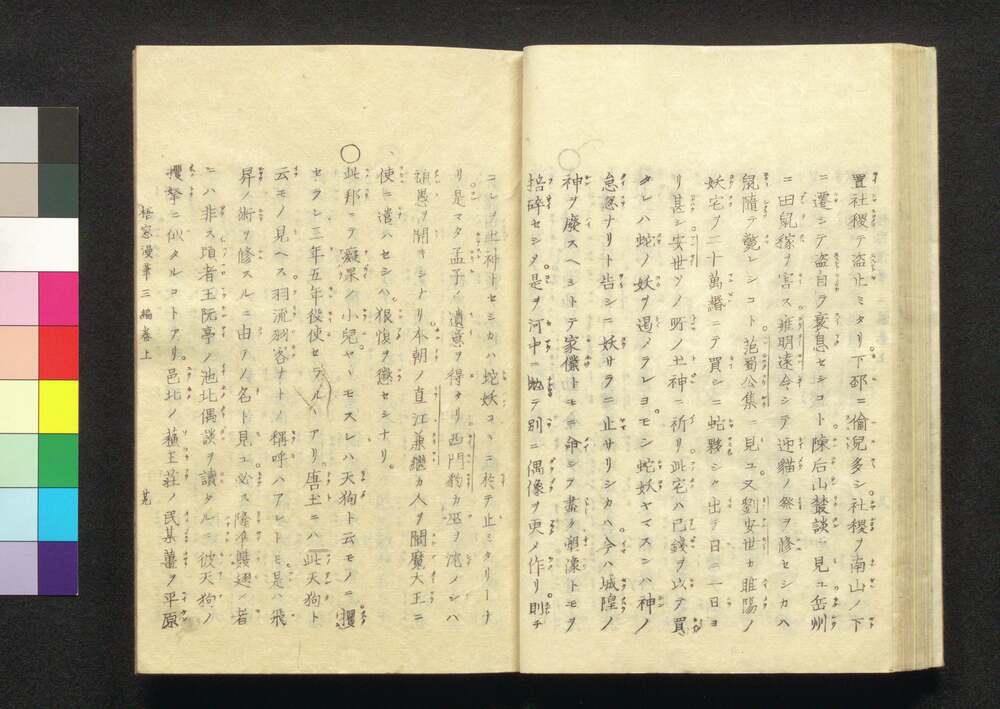 置社稷テ盗止ミタリ下邳ニ偷児多シ社稷ヲ南山ノ下
ニ遷シテ盗自ラ衰息セシコト陳后山叢談ニ見ユ岳州
ニ田鼠稼ヲ害ス雍明遠令シテ迎貓ノ祭ヲ修セシカハ
鼠随テ斃レシコト范蜀公集ニ見ユ又劉安世カ睢陽ノ
妖宅ヲ二十萬緡ニテ買シニ蛇夥シク出ヲ日ニ一日ヨ
リ甚シ安世ソノ所ノ土神ニ祈リ此宅ハ已銭ヲ以テ買
タレハ蛇ノ妖ヲ遏メラレヨモシ蛇妖ヤマスンハ神ノ
怠惰ナリト告シニ妖サラニ止サリシカハ今ハ城隍ノ
神ヲ廃スヘシトテ家僕トモニ命シテ盡ク塑像トモヲ
掊碎セシタ是ヲ河中ニ抛テ別ニ偶像ヲ更メ作リ則チ
コレヲ土神トセシカハ蛇妖コヽニ於テ止ミタリーナ
リ是マタ孟子ノ遺意ヲ得タリ西門豹カ巫ヲ沱ノシハ
頑愚ヲ開キシナリ本朝ノ直江兼繼カ人ヲ閻魔大王ニ
使ニ遣ハセシハ狠愎ヲ懲セシナリ
○此邦ニテ癡果ノ小兒ヤヽモスレハ天狗ト云モノニ攫
セラレ三年五年役使セラルヽアリ唐土ニハ此天狗ト
云モノ見ヘス羽流羽客ナトノ稱呼ハアレトモ是ハ飛
昇ノ術ヲ修スルニ由テノ名ト見ユ必ス隆準襲翅ノ者
ニハ非ス頃者王阮亭ノ池北偶談ヲ讀タルニ彼天狗ノ
攫拏ニ似タルコトアリ邑北ノ蘓王荘ノ民某薑ヲ平原
梧窓漫筆三編巻上